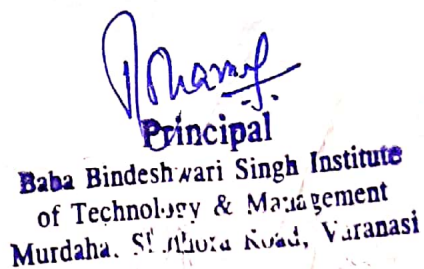 Principal
Baba Bindeshwari Singh Institute
of Technology & Management
Murdaha. Road, Varanasi